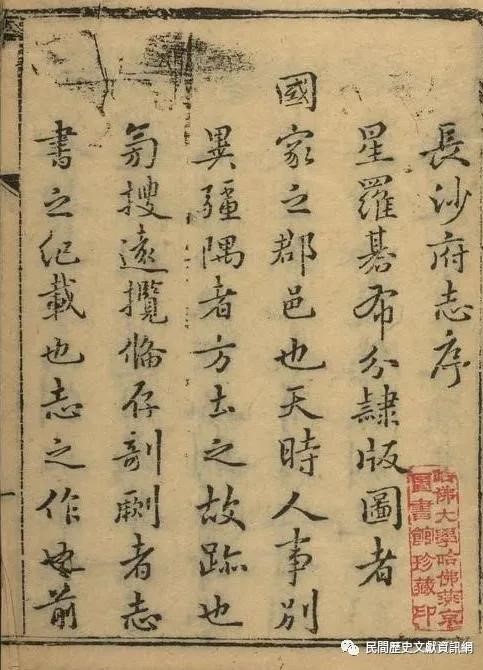 長沙府志序
星羅碁布分隸版圖者
國家之郡邑也天時人事別
異疆隅者方土之故跡也
旁搜遠攬備存剞劂者志
書之紀載也志之作也前
哈佛大學哈佛燕京
圖書館珍藏印
民間歷史文獻資訊網